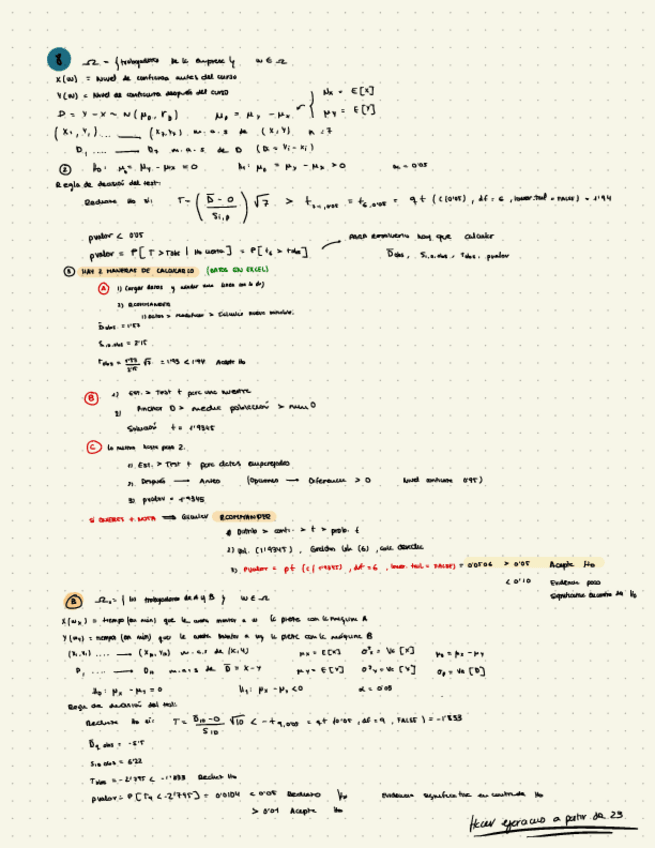 8 Ω = {trabajadores de la empresa} ω ∈ Ω
X(ω) = Nivel de confianza antes del curso
Y(ω) = Nivel de confianza después del curso
D = Y - X ~ N(μD, σD) μD = μY - μX { μX = E[X]
μY = E[Y]
(X1, Y1) .... (X7, Y7) m.a.s de (X, Y) n = 7
D1, .... D7 m.a.s de D (Di = Yi - Xi)
H0: μD = μY - μX = 0 H1: μD = μY - μX > 0 α = 0'05
Regla de decisión del test:
Rechazo H0 si: T = (D̄ - 0 / S1,D) √7 > t = t6,0'05 = qt (c(0'05), df = 6, lower.tail = FALSE) = 1'94
pvalor < 0'05
pvalor = P[T > Tobs | H0 cierta] = P[t6 > tobs]
PARA resolverlo hay que calcular
D̄obs, S1,D,obs, tobs, pvalor
3 HAY 3 MANERAS DE CALCULARLO (DATOS EN EXCEL)
A 1) Cargar datos y
2) RCOMMANDER
1) Datos > Modificar > Calcular nueva variable,
D̄obs. = 1'57
S1,D,obs = 2'15
tobs = √7 = 1'93 < 1'94 Acepto H0
B 1) Est. > Test t para una muestra
2) Anchor D > media población > num 0
Solución t = 1'9345
C
1) Est. > Test t para datos emparejados
2) Después → Antes (Opciones → Diferencia > 0 Nivel confianza 0'95)
3) pvalor = 1'9345
SI QUIERES + NOTA ⟹ Calcular RCOMMANDER
Distrib > cont. > t > prob. t
2) Val. (1'9345), Grados lib (6), cola derecha
3) pvalor = pt (c(1'9345), df = 6, lower.tail = FALSE) = 0'0506 > 0'05 Acepto H0
< 0'10 Evidencia poco
significativa en contra de H0
B Ω = {los trabajadores de A y B} ω ∈ Ω
X(ω) = tiempo (en min) que le cuesta montar a ω la pieza con la máquina A
Y(ω) = tiempo (en min) que le cuesta montar a ω la pieza con la máquina B
m.a.s de (X, Y) μX = E[X] μD = μX - μY
D1 .... → Dn m.a.s de D = X - Y μY = E[Y]
H0: μX - μY = 0 H1: μX - μY < 0 α = 0'05
Regla de decisión del test:
Rechazo H0 si: T = D̄10 - 0 / S10 √10 < - t9,0'05 = qt (0'05, df = 9, FALSE) = -1'833
D̄ obs = -5'5
S10 obs = 6'22
Tobs = -2'795 < -1'833 Rechazo H0
pvalor = P[T9 < -2'795] = 0'0104 < 0'05 Rechazo H0 Evidencia significativa en contra de H0
> 0'01 Acepto H0
Hacer ejercicio a partir de 23.